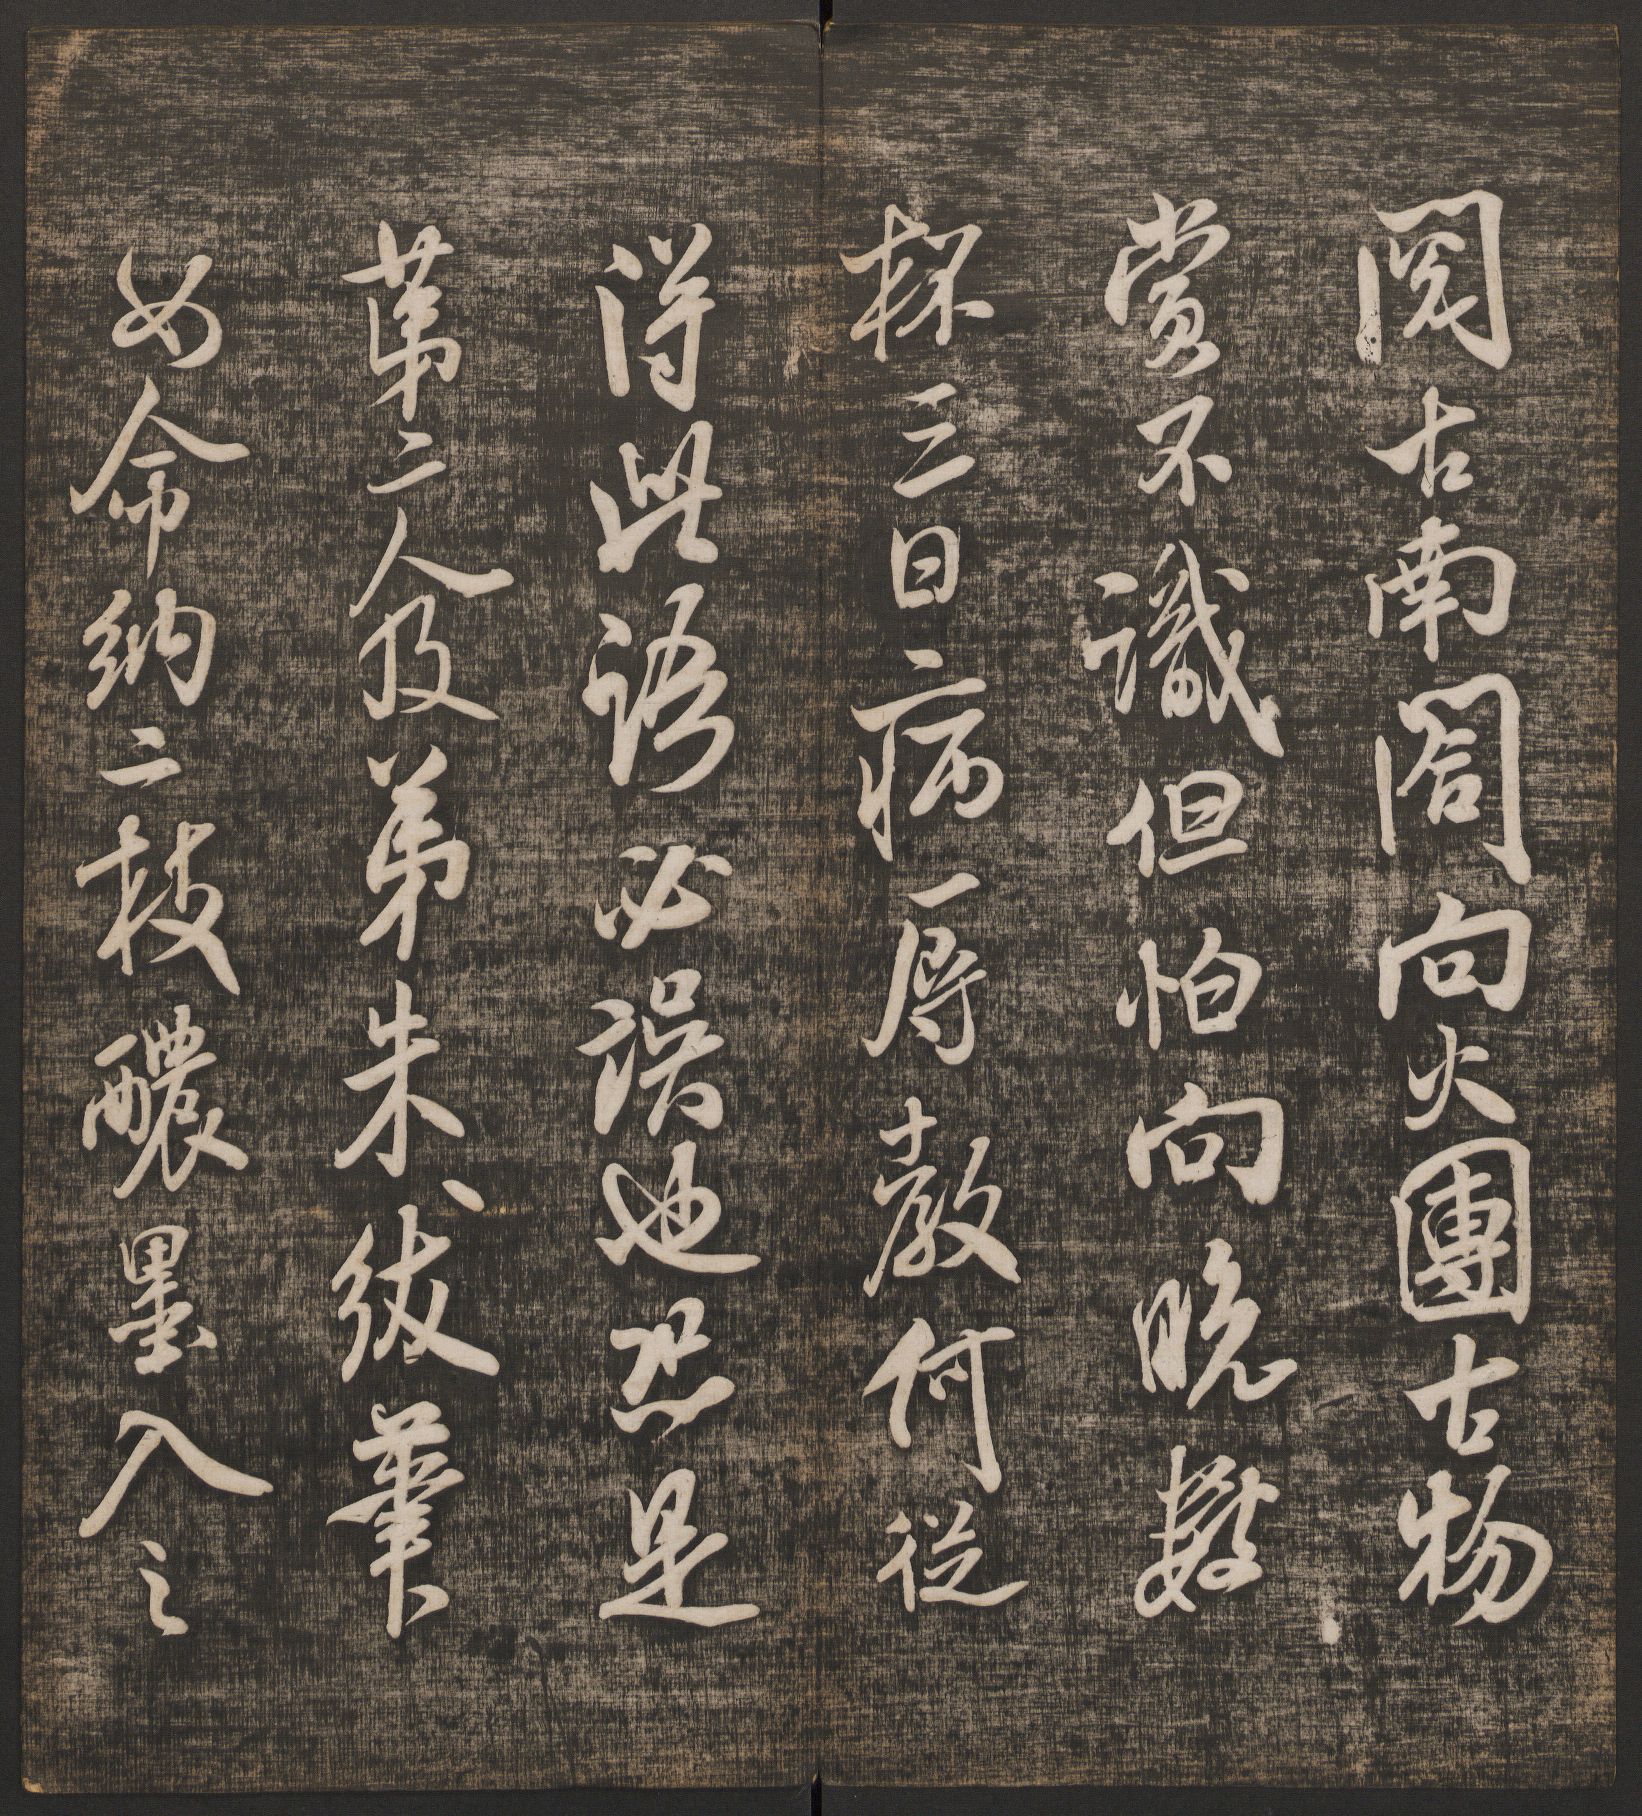 閱古南閣向火團古物
賞不識但怕向晚數
杯三日病辱教何從
得此語必誤也恐是
第二人及弟朱紱筆
如命納二枝醲墨入之